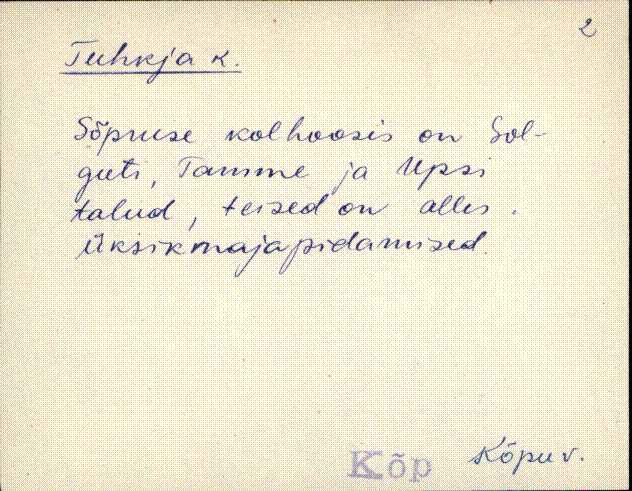 2
Tuhkja k.
Sõpruse kolhoosis on Sol-
guti, Tamme ja Upsi
talud, teised on alles
üksikmajapidamised.
Kõp Kõpu v.